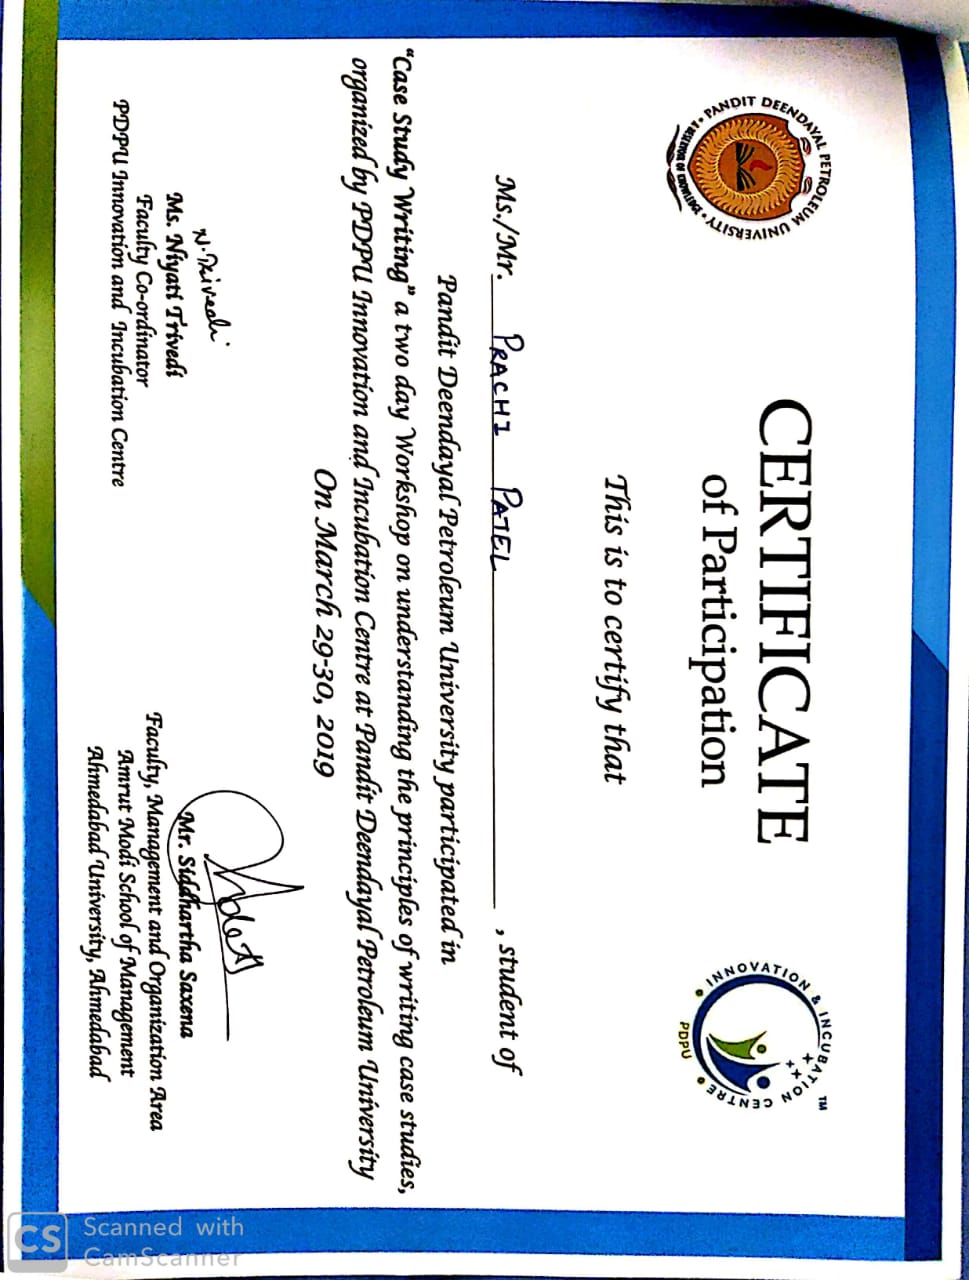 PANDIT DEENDAYAL PETROLEUM UNIVERSITY
INNOVATION & INCUBATION CENTRE
TM
PDPU
CERTIFICATE
of Participation
This is to certify that
Ms./Mr. PRACHI PATEL , student of
Pandit Deendayal Petroleum University participated in
"Case Study Writing" a two day Workshop on understanding the principles of writing case studies,
organized by PDPU Innovation and Incubation Centre at Pandit Deendayal Petroleum University
On March 29-30, 2019
N. Trivedi
Ms. Niyati Trivedi
Faculty Co-ordinator
PDPU Innovation and Incubation Centre
Mr. Siddhartha Saxena
Faculty, Management and Organization Area
Amrut Modi School of Management
Ahmedabad University, Ahmedabad
CS Scanned with
CamScanner